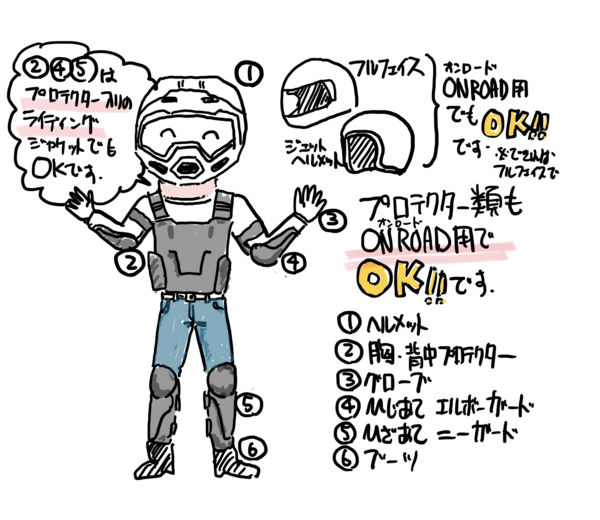 ②④⑤は
プロテクター入りの
ライディング
ジャケットでも
OKです.
①
フルフェイス
ジェット
ヘルメット
オンロード
ONROAD用
でもOK!!
です.
※できれば
フルフェイスで
②
③
④
⑤
⑥
プロテクター類も
オンロード
ONROAD用で
OK!!です.
①ヘルメット
②胸・背中プロテクター
③グローブ
④ひじあて エルボーガード
⑤ひざあて ニーガード
⑥ブーツ